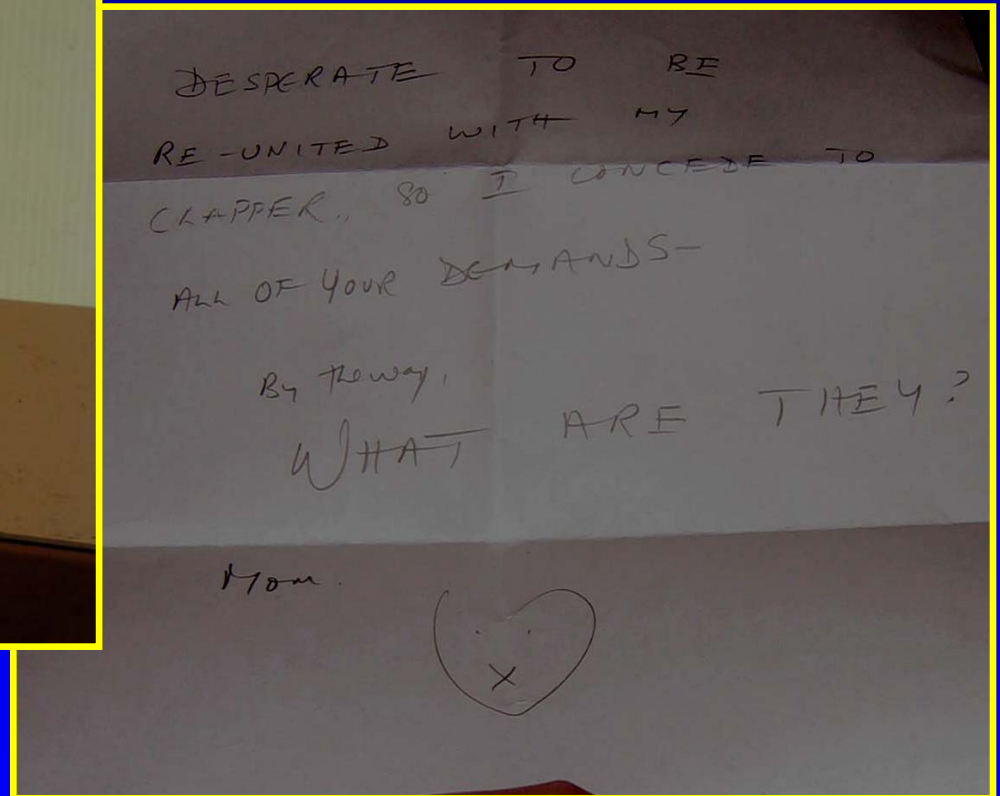 DESPERATE TO BE
RE-UNITED WITH MY
CLAPPER, SO I CONCEDE TO
ALL OF YOUR DEMANDS-
By the way,
WHAT ARE THEY?
Mom.
X